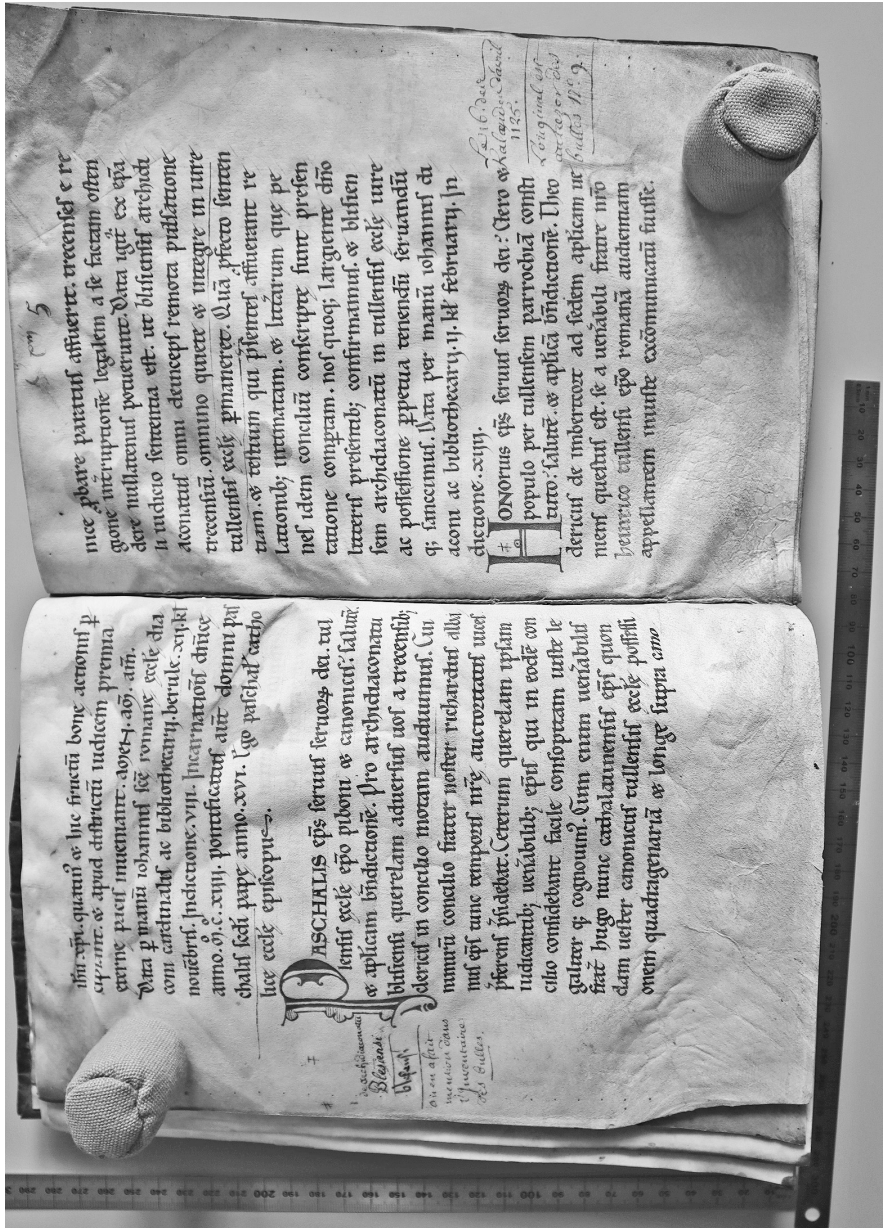 ihu xpi. quatin' & hic fructū bonę actionis p̄
cipiant. & apud districtū iudicem premia
eterne pacis inueniant.
Data p̄ manū iohannis scē romane ecclę dia
coni cardinalis ac bibliothecarij. berule. xij. kł
nouēbris. Indictione. viij. Incarnationis dnice
anno. ꝏ. c. xiiij. pontificatus aut̄ domni pas
chalis scdi papę anno. xvi. Ego paschal' catho
lice ecclę episcopus.
PASCHALIS ep̄s seruus seruoꝝ dei. tul
lensis ecclę epō piboni & canonicis: salutē.
& aplicam bn̄dictionē. Pro archidiaconatu
blesensi querelam aduersus uos a trecensib;
clericis in concilio motam audiuimus. Cui
nimirū concilio frater noster richardus alba
nus ep̄s tunc temporis nr̄ę auctoritatis uices
p̄ferens p̄sidebat. Ceterum querelam ipsam
iudicantib; uenābilib; epis qui in eodē con
cilio considebant facile consopitam uiste le
galiter q; cognouim'. Cum enim uenābilis
frat̄ hugo nunc cathalaunensis ep̄s quon
dam uester canonicus tullensis ecclę possessi
onem quadragenariā & longe supra cano
de archidiaconatu
Blesiensi
blesensi
on en a fait
mention dans
l'Inventaire
des bulles.
nice p̄bare paratus affuerit. trecenses e re
gione int̄ruptionē legalem a se factam osten
dere nullatenus potuerunt. Data igit̄ ex epā
li iudicio sententia est. ut blisensis archidi
aconatus omni deinceps remota pulsatione
trecensiū. omnino quiete & integre in iure
tullensis ecclę p̄maneret. Quā p̄fecto senten
tiam. & testium qui p̄sentes affuerant re
lationib; intimatam. & litt̄arum quę pe
nes idem conciliū conscriptę sunt presen
tatione comp̄tam. nos quoq; largiente dn̄o
litteris presentib; confirmamus. & blisien
sem archidiaconatū in tullensis ecclę iure
ac possessione p̄petua tenendū seruandū
q; sanccimus. Data per manū iohannis di
aconi ac bibliothecarij. ij. kł februarij. In
dictione. xiij.
HONORIUS ep̄s seruus seruoꝝ dei: Clero &
populo per tullensem parrochiā consti
tuto: salutē. & aplicā bn̄dictionē. Theo
dericus de imbercort ad sedem aplicam ue
niens questus est. se a uenābili fratre nr̄o
heinrico tullensi epō romanā audientiam
appellantem iniuste excōmunicatū fuisse.
Le 16. de
kalendes d'avril
1125.
L'original est
au layer des
bulles n.º 9.